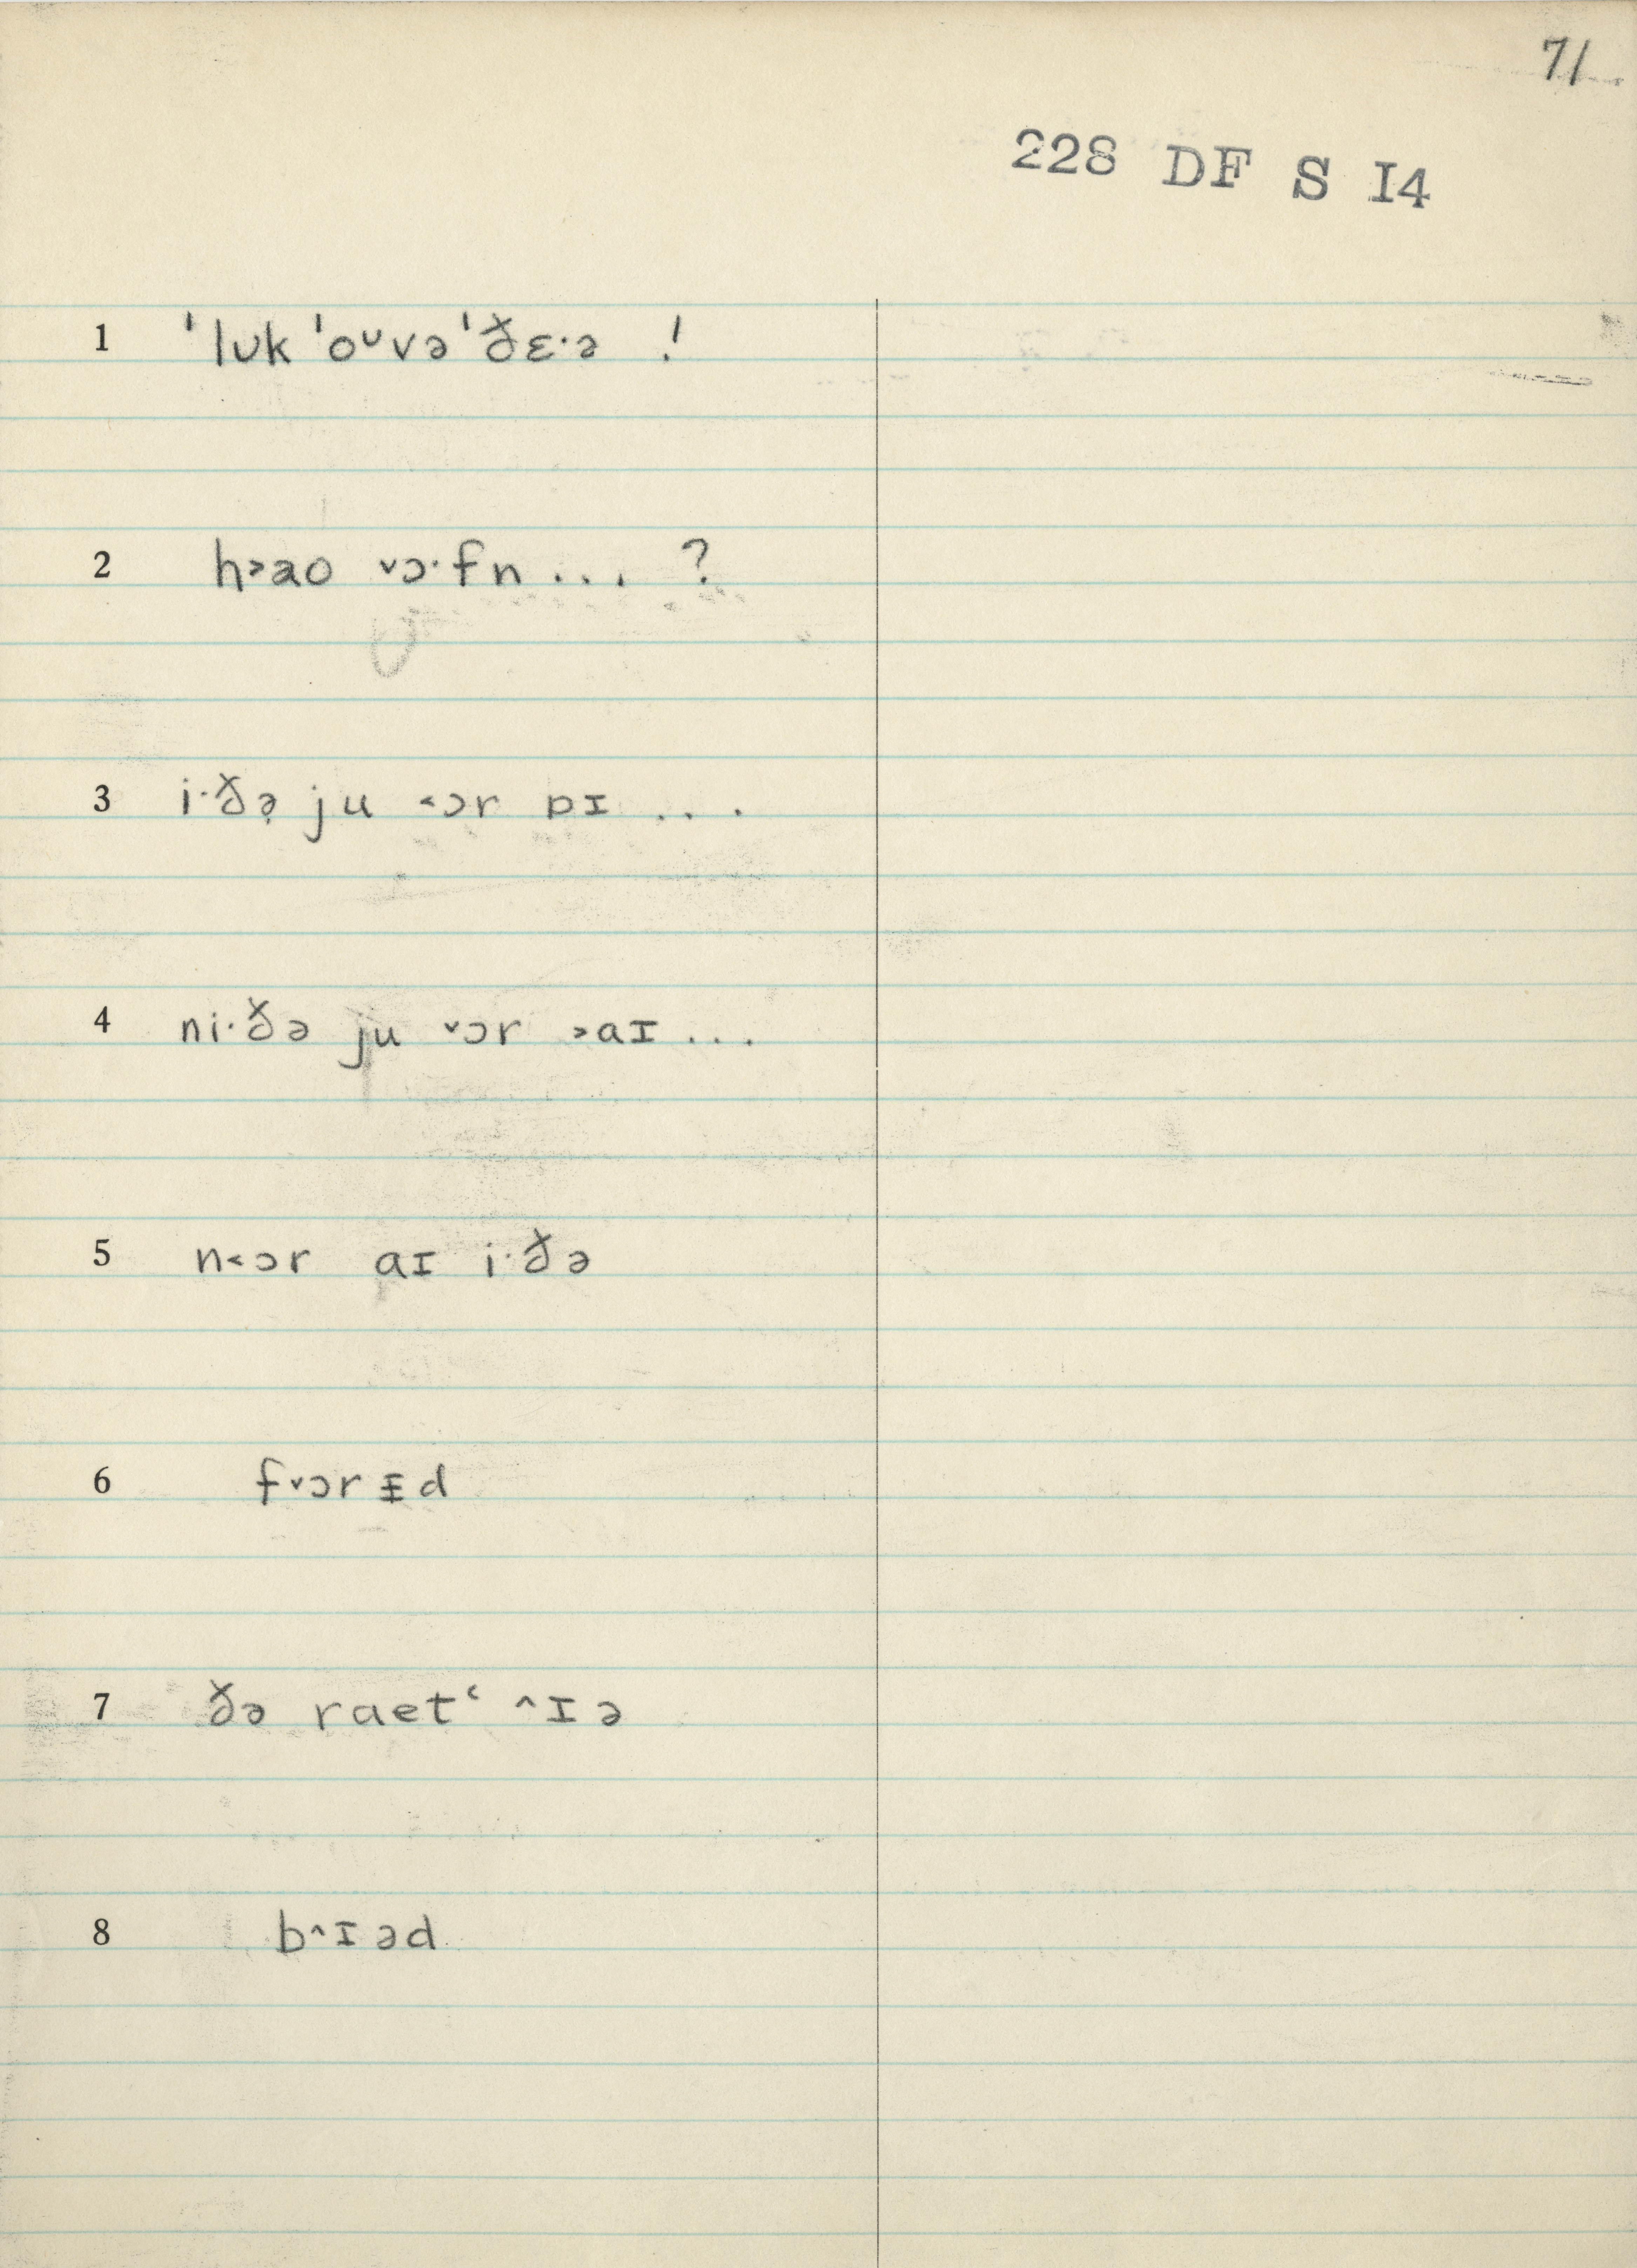 71
228 DF S I4
1 ˈlʊk ˈoᴜvə ˈðɛ·ə !
2 h˃ao ˅ɔ·fn ... ?
3 i·ðə̣ ju ˂ɔr ɒɪ ...
4 ni·ðə ju ˅ɔr ˃aɪ ...
5 n˂ɔr aɪ i·ðə
6 f˅ɔrᵻd
7 ðə raetʿ ˄ɪə
8 b˄ɪəd